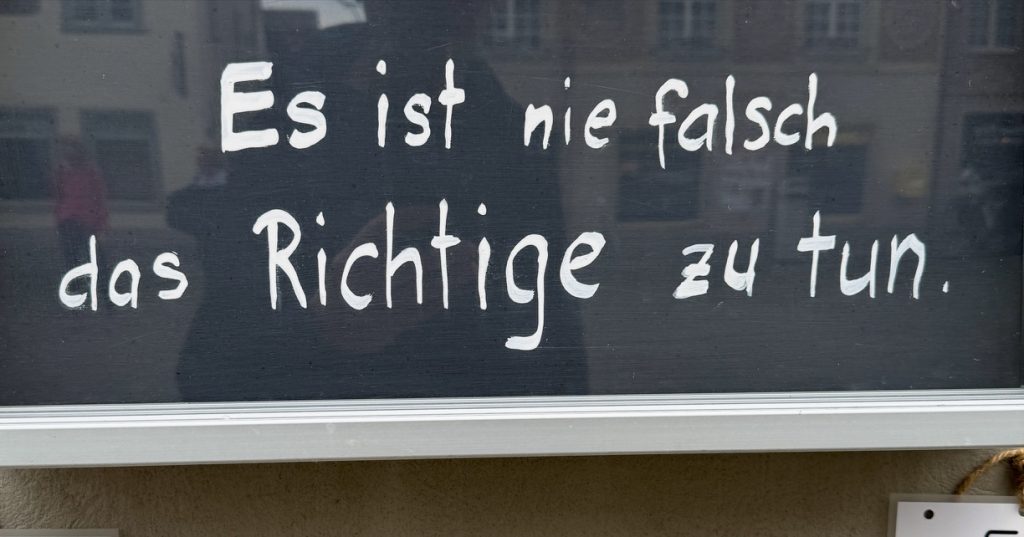 Es ist nie falsch
das Richtige zu tun.